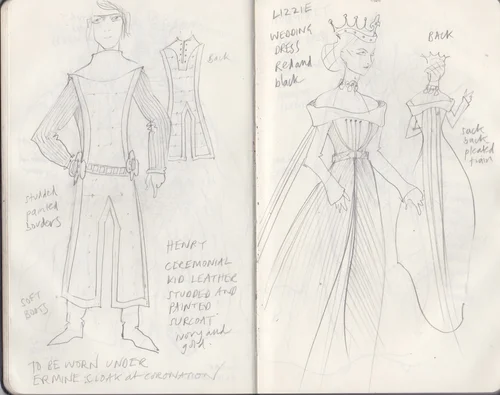 BACK
studded
painted
borders
SOFT
BOOTS
HENRY
CEREMONIAL
KID LEATHER
STUDDED AND
PAINTED
SURCOAT
ivory and
gold.
TO BE WORN UNDER
ERMINE CLOAK at CORONATION
LIZZIE
WEDDING
DRESS
Red and
black
BACK
sack
back
pleated
train